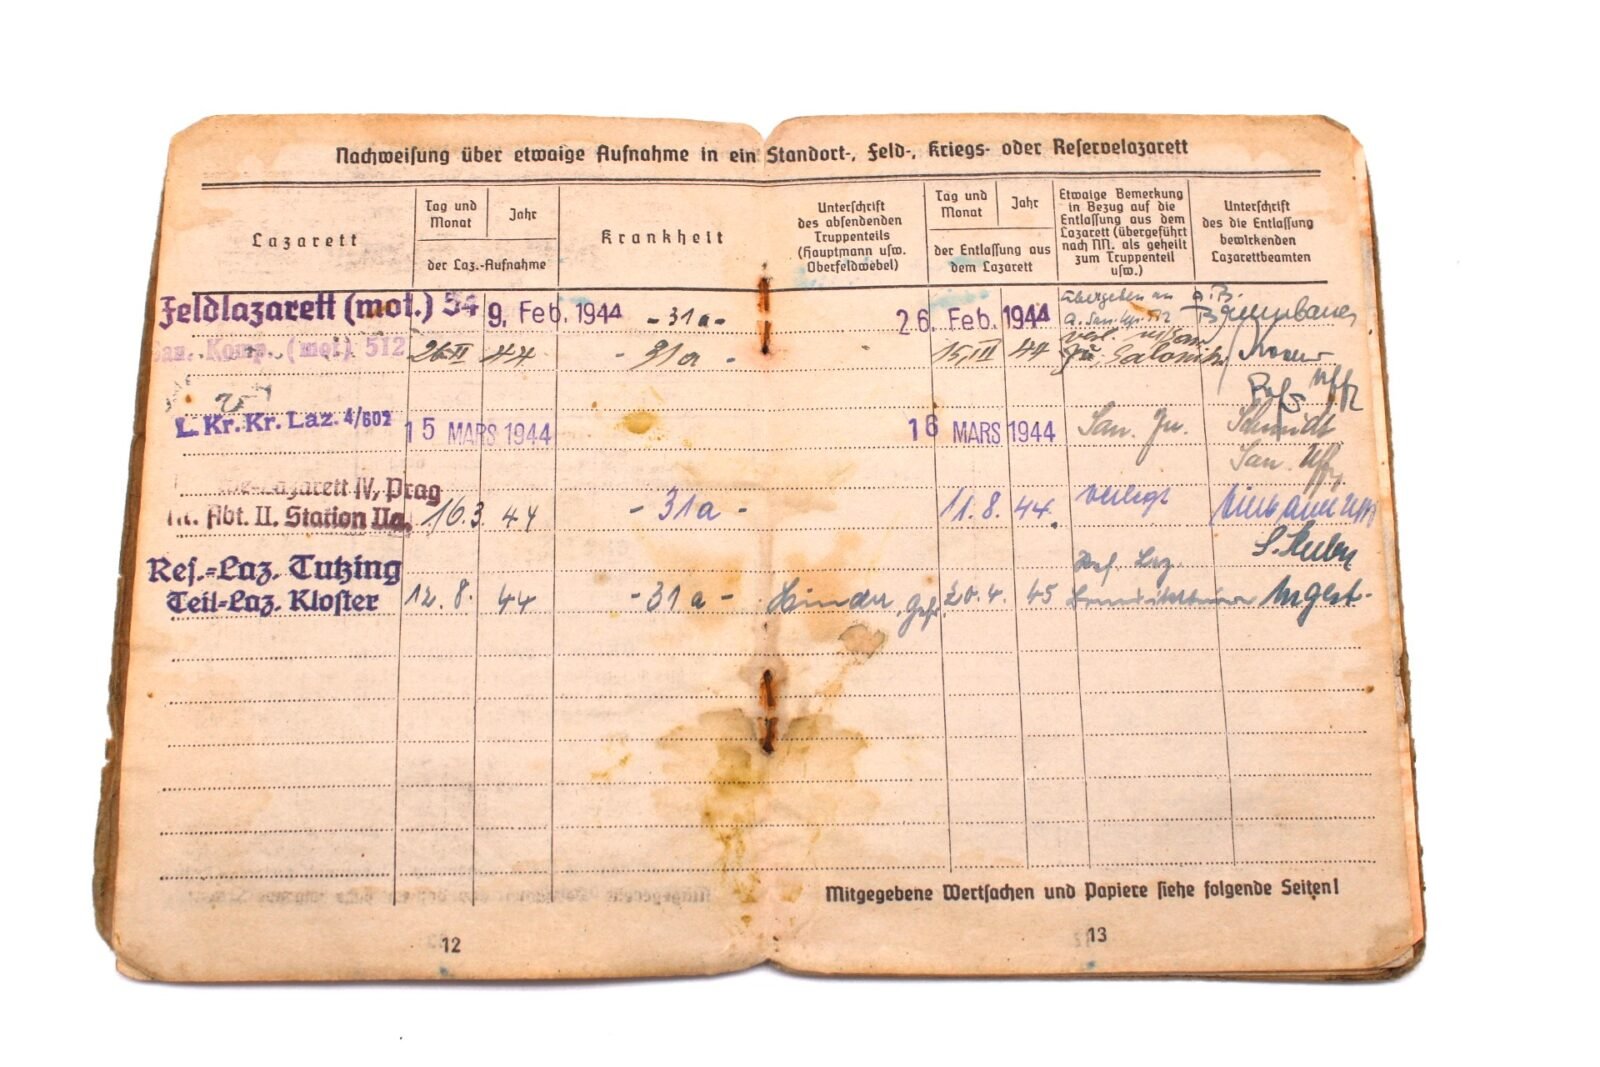 Nachweisung über etwaige Aufnahme in ein Standort-, Feld-, Kriegs- oder Reservelazarett
Lazarett
Tag und
Monat
Jahr
der Laz.-Aufnahme
Krankheit
Unterschrift
des absendenden
Truppenteils
(Hauptmann usw.
Oberfeldwebel)
Tag und
Monat
Jahr
der Entlassung aus
dem Lazarett
Etwaige Bemerkung
in Bezug auf die
Entlassung aus dem
Lazarett (übergeführt
nach NN. als geheilt
zum Truppenteil
usw.)
Unterschrift
des die Entlassung
bewirkenden
Lazarettbeamten
Feldlazarett (mot.) 54 9. Feb. 1944 -31a- 26. Feb. 1944 übergeben an
San. Komp. (mot) 512 26 II 44 - 31a - 15. III 44
L. Kr. Kr. Laz. 4/602 15 MARS 1944 16 MARS 1944 San. Schmidt
San. Uffz
Lazarett IV, Prag
Abt. II. Station IIa. 16.3. 44 - 31a - 11. 8. 44. verlegt
Res.-Laz. Tutzing
Teil-Laz. Kloster 12. 8. 44 - 31a - 20. 4. 45 Angest.
Mitgegebene Wertsachen und Papiere siehe folgende Seiten!
12
13